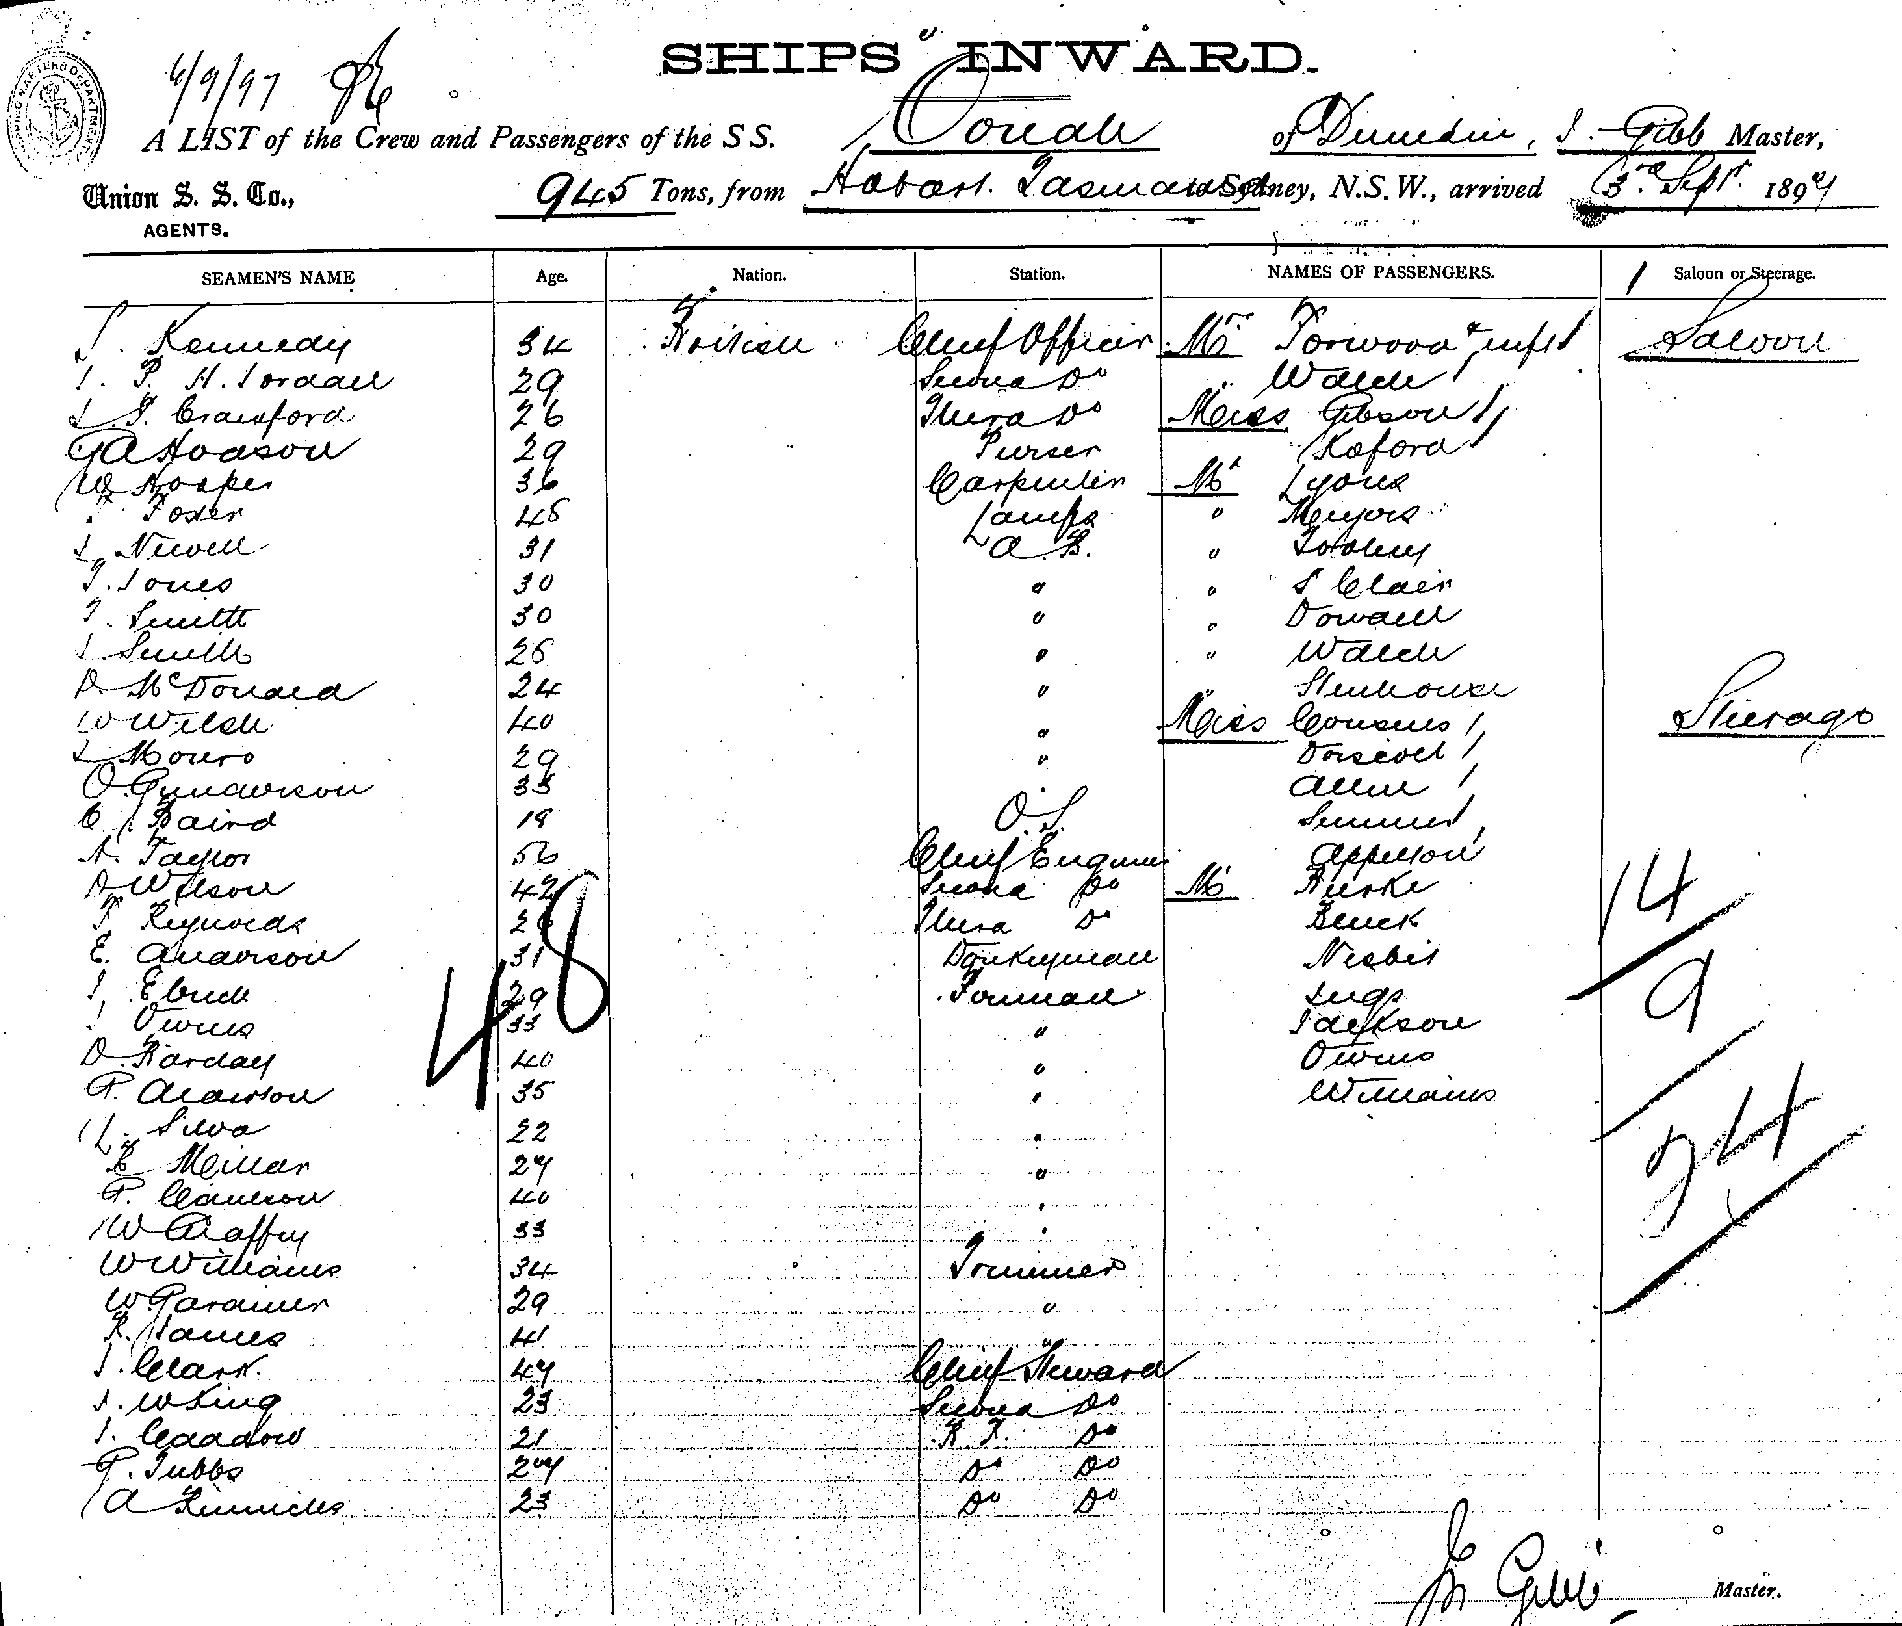 SHIPS INWARD.
4/9/97
A LIST of the Crew and Passengers of the S S. Oonah of Dunedin, J. Gibb Master,
Union S. S. Co., 945 Tons, from Hobart. Tasmania to Sydney, N.S.W., arrived 3rd Sept. 1897
AGENTS.
SEAMEN'S NAME Age. Nation. Station. NAMES OF PASSENGERS. Saloon or Steerage.
J. Kennedy 34 British Chief Officer Mrs Forwood & inft Saloon
29 Second Do " Walch
Crawford 26 Third Do Miss Gibson
G A Hodson 29 Purser
W Hosper 36 Carpenter Mr Lyons
F Foster 45 Lamps " Meyers
J Newell 31 A B. "
T. Jones 30 " " St Clair
T. Smith 30 " " Dowdell
J Smith 25 " " Walch
D McDonald 24 " " Stenhouse
W Welsh 40 " Miss Cousens Steerage
J Mouro 29 " Driscoll
O. Gunderson 33 Allen
C J Baird 19 O.S.
A. Taylor 56 Chief Engineer Appleton
D Wilson 42 Second Do Mr Burke
F Reynolds 26 Third Do
E. Anderson 31 Donkeyman Nesbit
29 Fireman
J Owens 33 " Jackson
D. Barclay 40 " Owens
P. Anderson 35 " Williams
L. Silva 22 "
R Meillar 27 "
P. Cameron 40 "
W Chaffey 33 "
W Williams 34 Trimmer
W Gardiner 29 "
R. Hames 41 "
J. Clark. 47 Chief Steward
J. W King 23 Second Do
J. Craddow 21 F. K. Do
P. Tubbs 27 Do Do
A 23 Do Do
48
14
9
24
Jn Gibb Master.